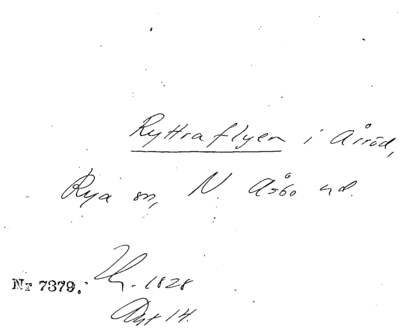 Ryttraflyen i Årröd,
Rya sn, N. Åsbo hd.
Nr 7379. 1828
Akt 14.